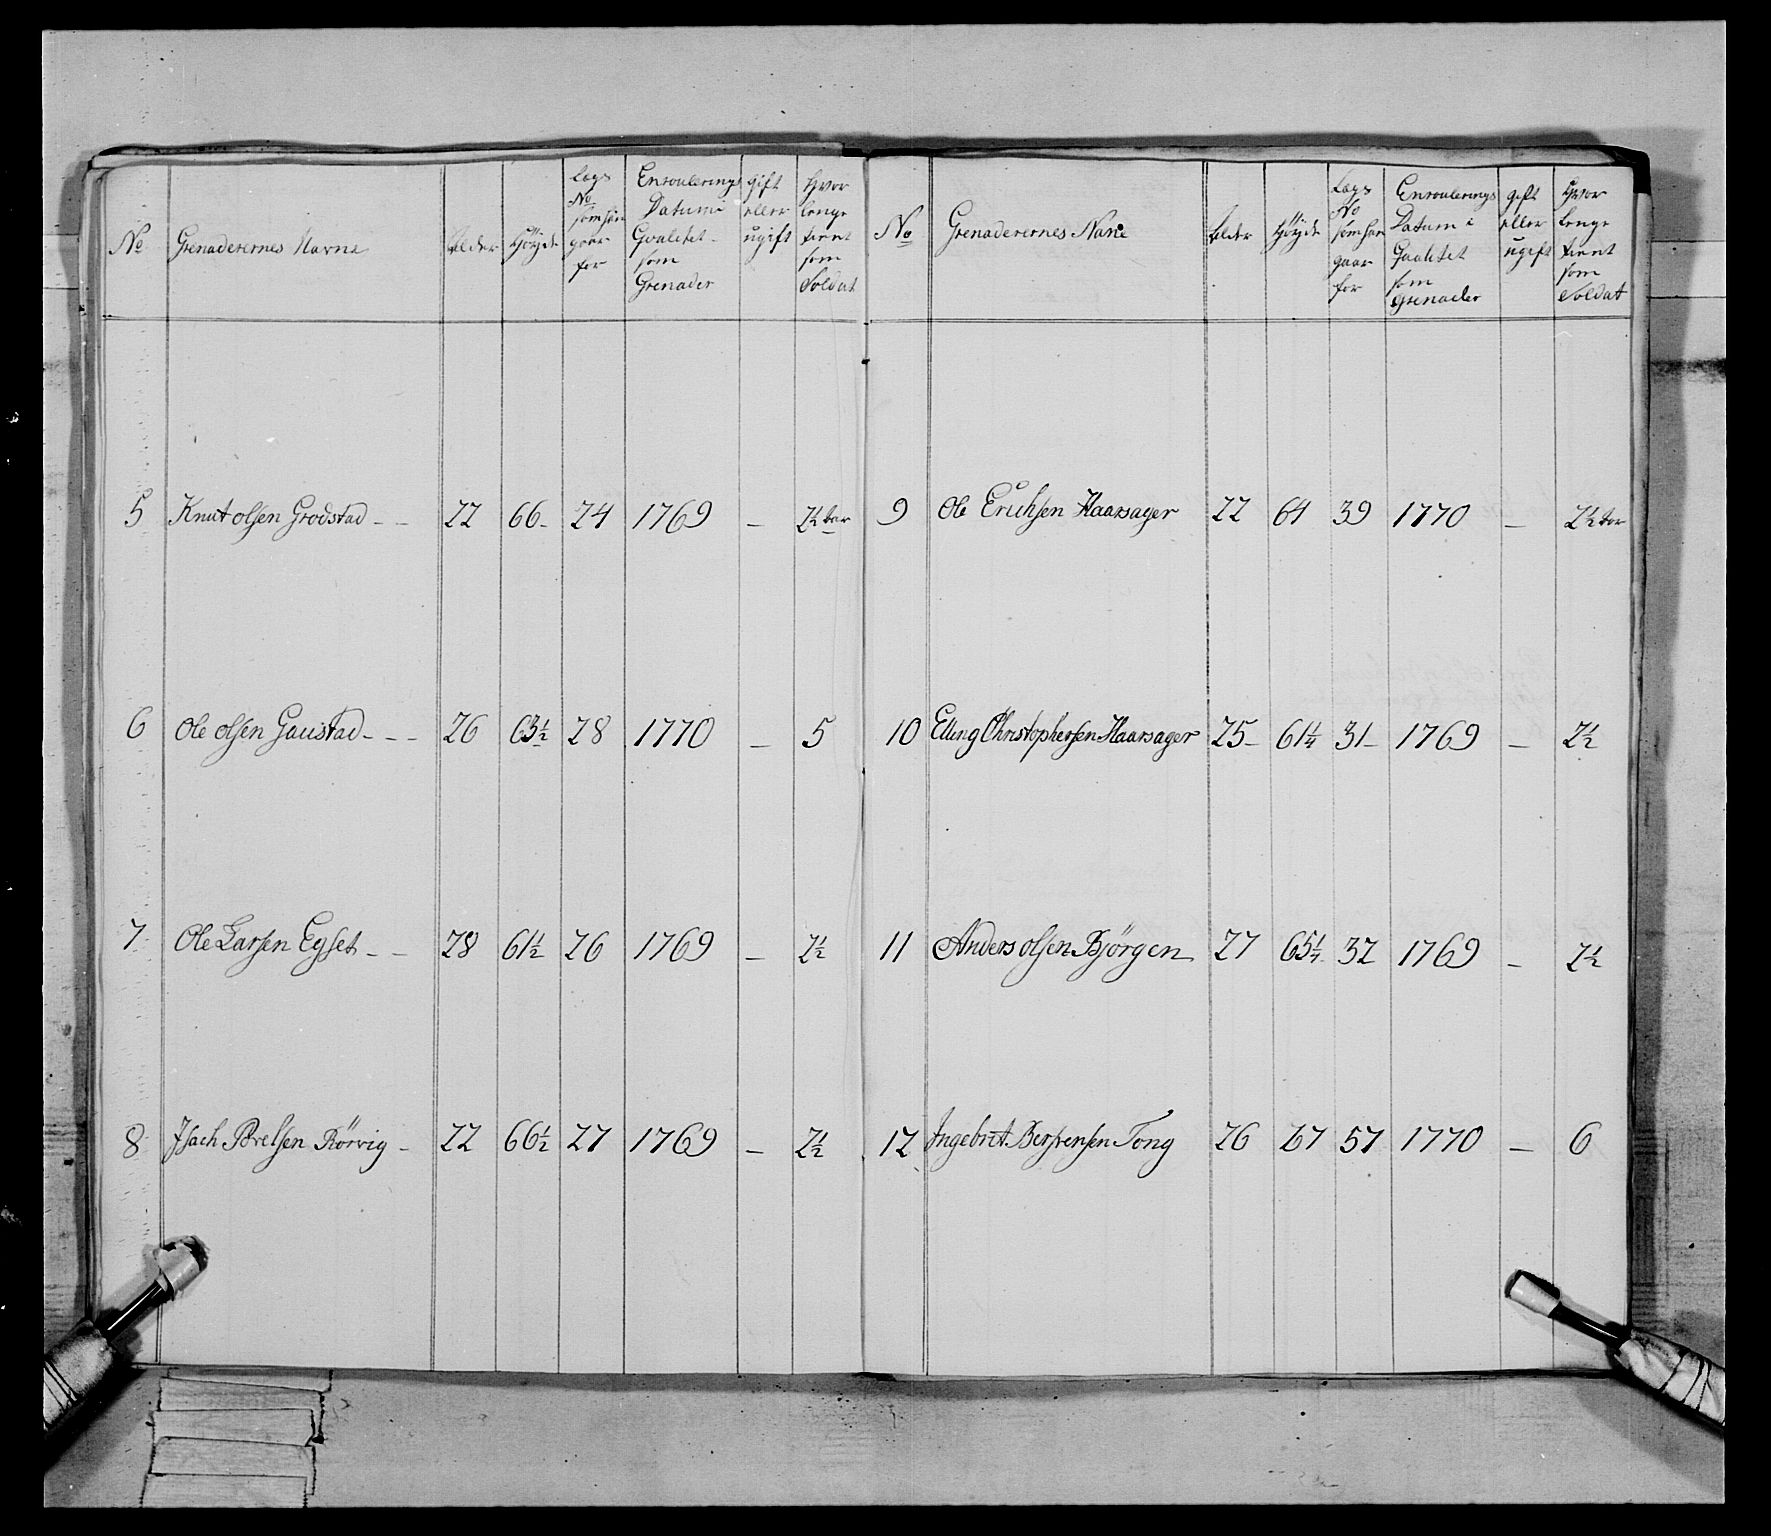 No
Grenaderernes Navne
Alder
Höyde
Lægs
No
som han
gaar
for
Enroulerings
Datum i
Qvalitet
som
Grenader
gift
eller
ugift
Hvor
lenge
tient
som
Soldat
5 Knut olsen Grodstad - - 22 66- 24 1769 - 2½ Aar
6 Ole olsen Gaustad - - - 26 63½ 28 1770 - 5
7 Ole Larsen Egset - - 28 61½ 26 1769 - 2½
8 Isach Rörvig - 22 66½ 27 1769 - 2½
No
Grenaderernes Navne
Alder
Höyde
Lægs
No
som han
gaar
for
Enroulerings
Datum i
Qvalitet
som
Grenader
gift
eller
ugift
Hvor
lenge
tient
som
Soldat
9 Ole Erichsen Haarsager 22 64 39 1770 - 2½ Aar
10 Elling Christophersen Haarsager 25- 61¼ 31- 1769 - 2½
11 Anders olsen Björgen 27 65¼ 32 1769 - 2½
12 Ingebret Tong 26 67 57 1770 - 6